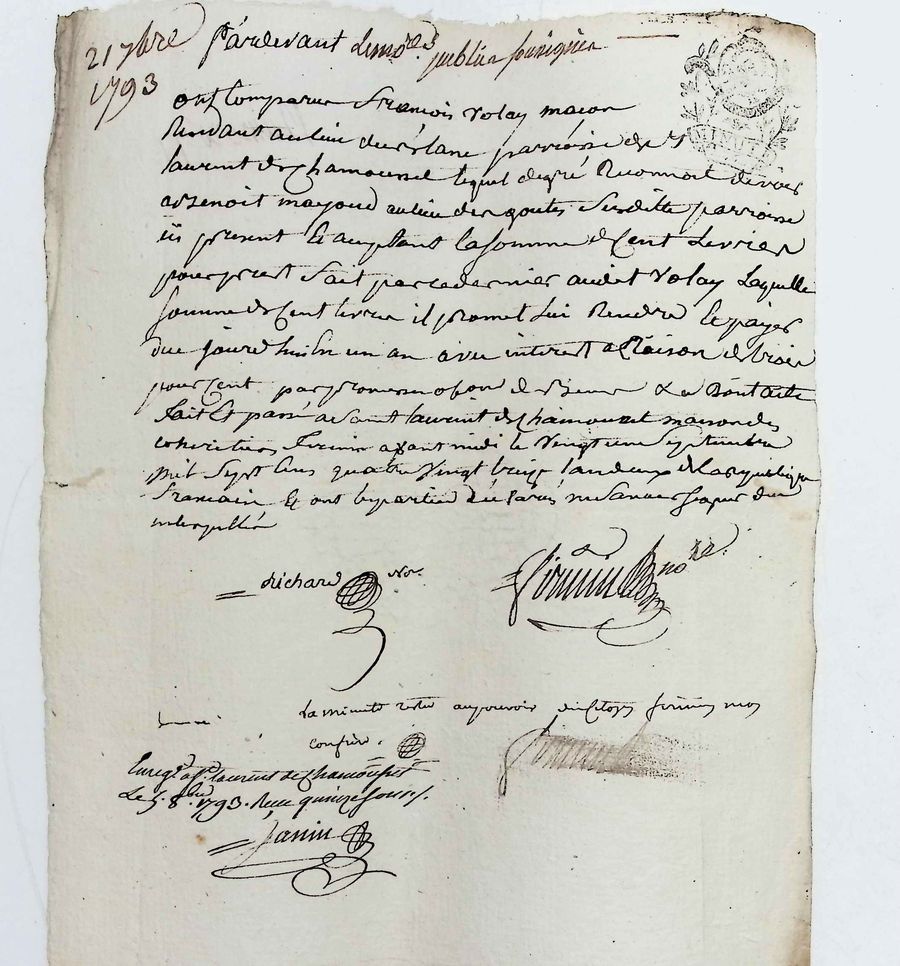 21 7bre
1793
Pardevant Les no.res publics soussignés
ont Comparu François Volay maçon
Residant au lieu du plane parroisse de St
laurent de Chamousset lequel de gré Reconnoit devoir
a Benoit mayoud au lieu des goutes Susditte parroisse
ici present Et acceptant la Somme de Cent Livres
pour prest fait par ce dernier audit Volay Laquelle
Somme de Cent livres il promet lui Rendre Et payer
du jourd'huy En un an avec interest a Raison de
pour Cent par promesse
fait Et passé a Saint laurent de Chamousset maison des
avant midi le Vingt un septembre
mil Sept Cens quatre Vingt treize l'an deux de la republique
francaise Et ont les parties declaré ne Savoir signer de ce
interpellés
Richard No.re
Firmin no.re
La minute restée au pouvoir du Citoyen firmin mon
confrere.
Enreg.é a St laurent de Chamousset
Le 5. 8bre 1793. Recu quinze sous.
Janin